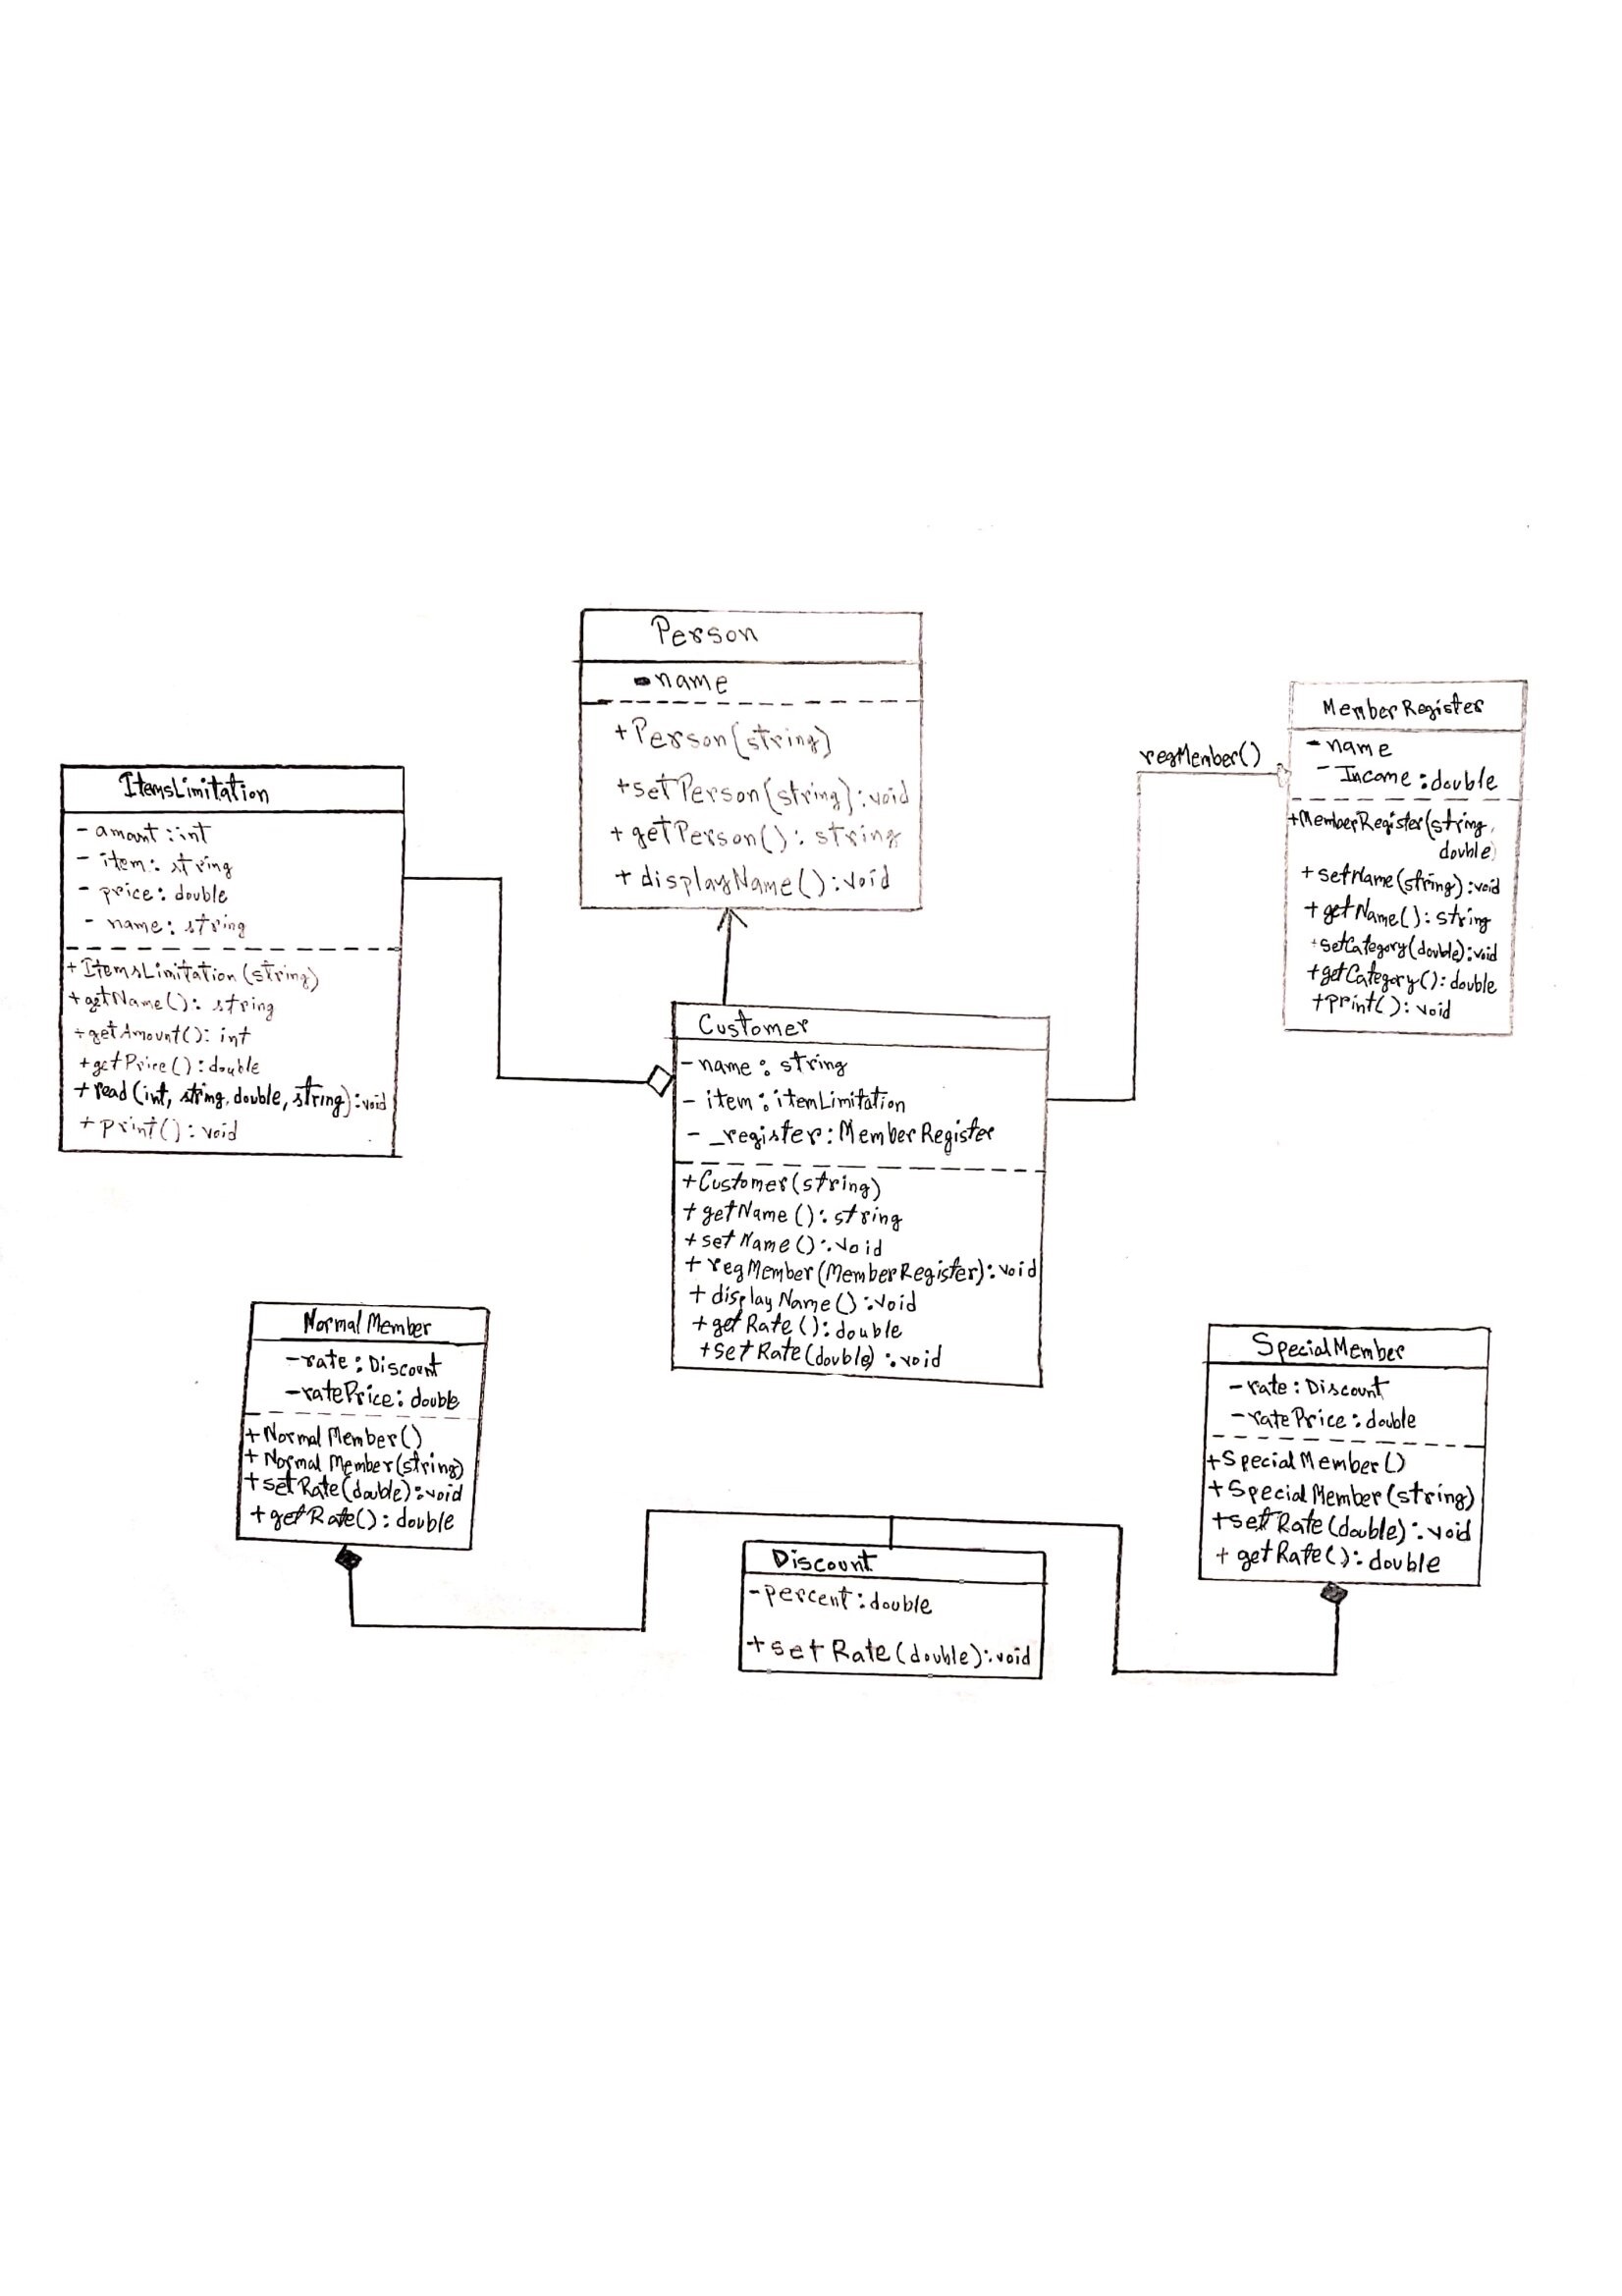 Person
-name
+Person(string)
+setPerson(string):void
+getPerson(): string
+displayName():void
MemberRegister
-name
-Income:double
+MemberRegister(string,
double)
+setName(string):void
+getName(): string
+setCategory(double):void
+getCategory(): double
+print(): void
regMember()
ItemsLimitation
- amount:int
- item: string
- price: double
- name: string
+ItemsLimitation(string)
+getName(): string
+getAmount(): int
+getPrice():double
+read(int, string, double, string):void
+print():void
Customer
-name: string
- item:itemLimitation
- _register:MemberRegister
+Customer(string)
+getName():string
+setName():void
+regMember(MemberRegister):void
+displayName():void
+getRate():double
+setRate(double):void
NormalMember
-rate:Discount
-ratePrice:double
+NormalMember()
+NormalMember(string)
+setRate(double):void
+getRate():double
SpecialMember
-rate:Discount
-ratePrice:double
+SpecialMember()
+SpecialMember(string)
+setRate(double):void
+getRate():double
Discount
-percent:double
+setRate(double):void